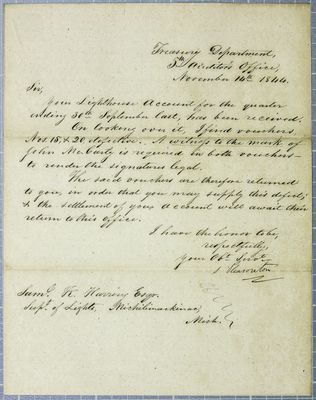 Treasury Department,
5th Auditor's Office,
November 14th 1844.
Sir,
Your Lighthouse Account for the quarter
ending 30th September last, has been received.
On looking over it, I find vouchers
Nos. 18, & 20 defective. A witness to the mark of
John McCarty is required in both vouchers
to render the signatures legal.
The said vouchers are therefore returned
to you, in order that you may supply this defect;
& the settlement of your account will await their
return to this office.
I have the honor to be,
respectfully,
your Obt. Servt.
S Pleasonton
Saml. K. Haring Esqr.
Supt. of Lights, Michilimackinac,
Mich.